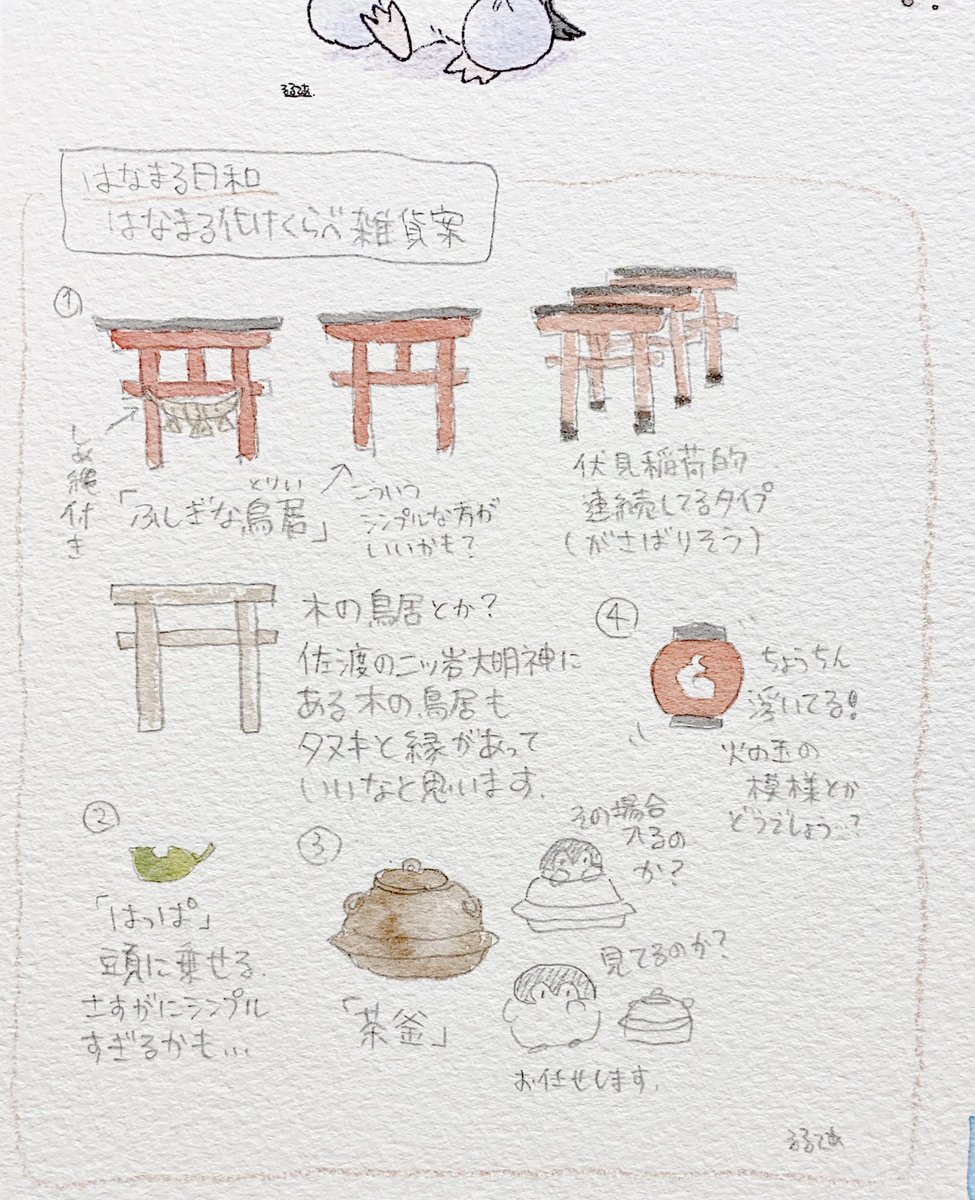 るるてあ.
はなまる日和
はなまる化けくらべ雑貨案
①
しめ縄付き
とりい
「ふしぎな鳥居」
こういう
シンプルな方が
いいかも?
伏見稲荷的
連続してるタイプ
(がさばりそう)
木の鳥居とか?
佐渡の二ッ岩大明神に
ある木の鳥居も
タヌキと縁があって
いいなと思います.
④
ちょうちん
浮いてる!
火の玉の
模様とか
どうでしょう…?
②
「はっぱ」
頭に乗せる.
さすがにシンプル
すぎるかも…
③
「茶釜」
その場合
入るの
か?
見てるのか?
お任せします.
るるてあ